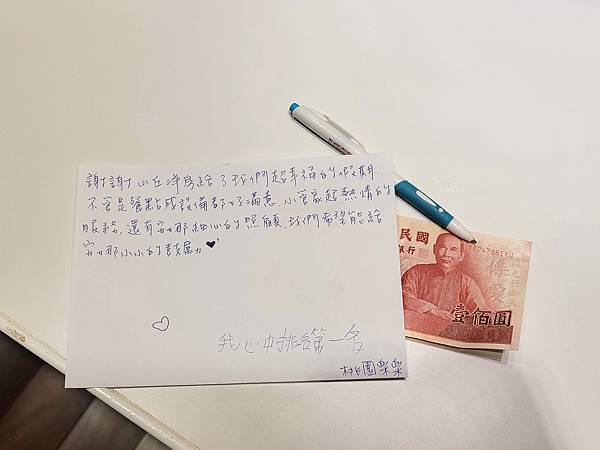 謝謝山丘洋房給了我們超幸福的假期.
不管是餐點或設備都好滿意.小管家超熱情的
服務.還有安娜細心的照顧.我們希望能給
安娜小小的鼓勵♥
♡
我心中排名第一名
桃園樂樂
民國
銀行
壹佰圓